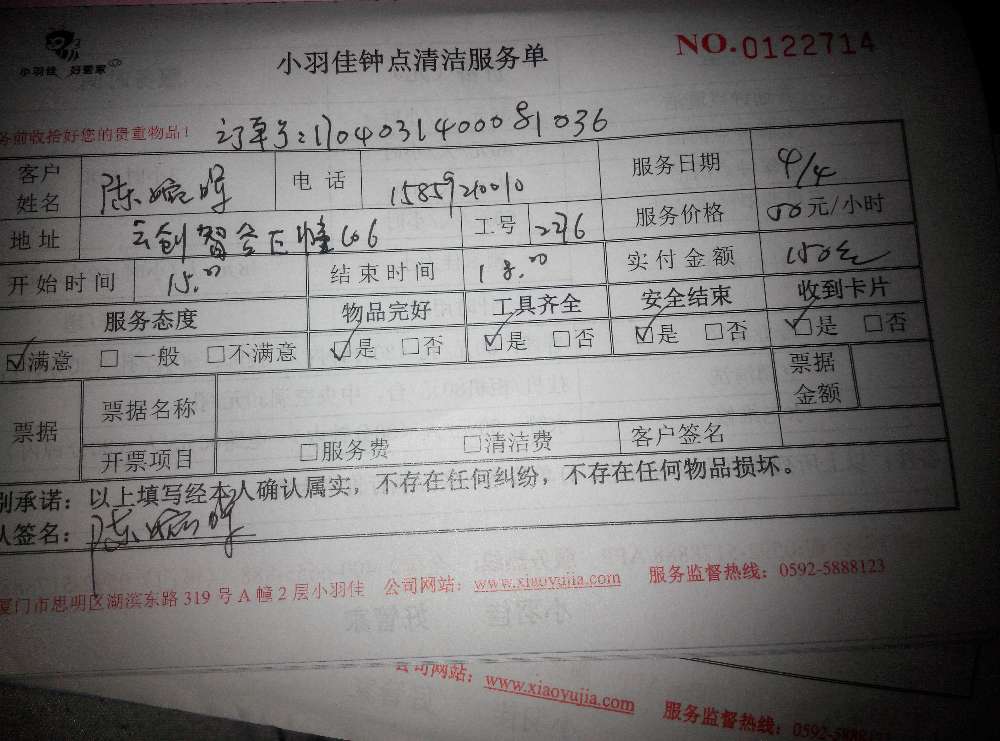 小羽佳 好管家
小羽佳钟点清洁服务单
NO.0122714
务前收拾好您的贵重物品！ 订单号:1704031400081036
客户姓名 陈婉晖 电话 15859210010 服务日期 4/4
地址 云创智谷E幢606 工号 2276 服务价格 50元/小时
开始时间 15.00 结束时间 18.00 实付金额 150元
服务态度 物品完好 工具齐全 安全结束 收到卡片
☑满意 □一般 □不满意 ☑是 □否 ☑是 □否 ☑是 □否 ☑是 □否
票据 票据名称 票据金额
开票项目 □服务费 □清洁费 客户签名
别承诺：以上填写经本人确认属实，不存在任何纠纷，不存在任何物品损坏。
人签名：陈婉晖
厦门市思明区湖滨东路 319 号 A 幢 2 层小羽佳 公司网站：www.xiaoyujia.com 服务监督热线：0592-5888123
公司网站：www.xiaoyujia.com 服务监督热线：0592-5888123